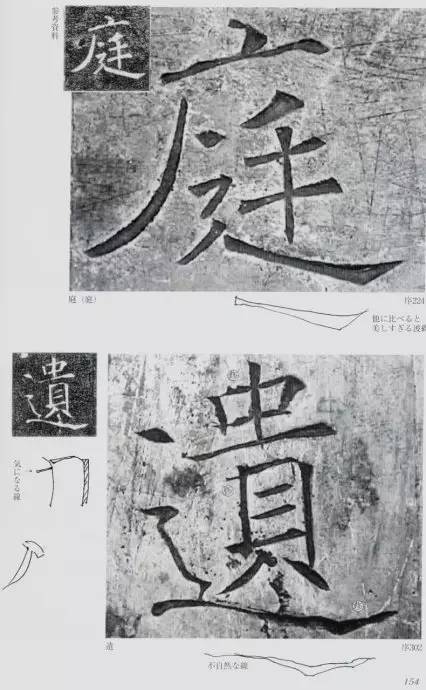 参考資料
庭
庭
庭(庭)
序224
他に比べると
美しすぎる波磔
遺
遺
気になる線
遺
序302
不自然な線
154